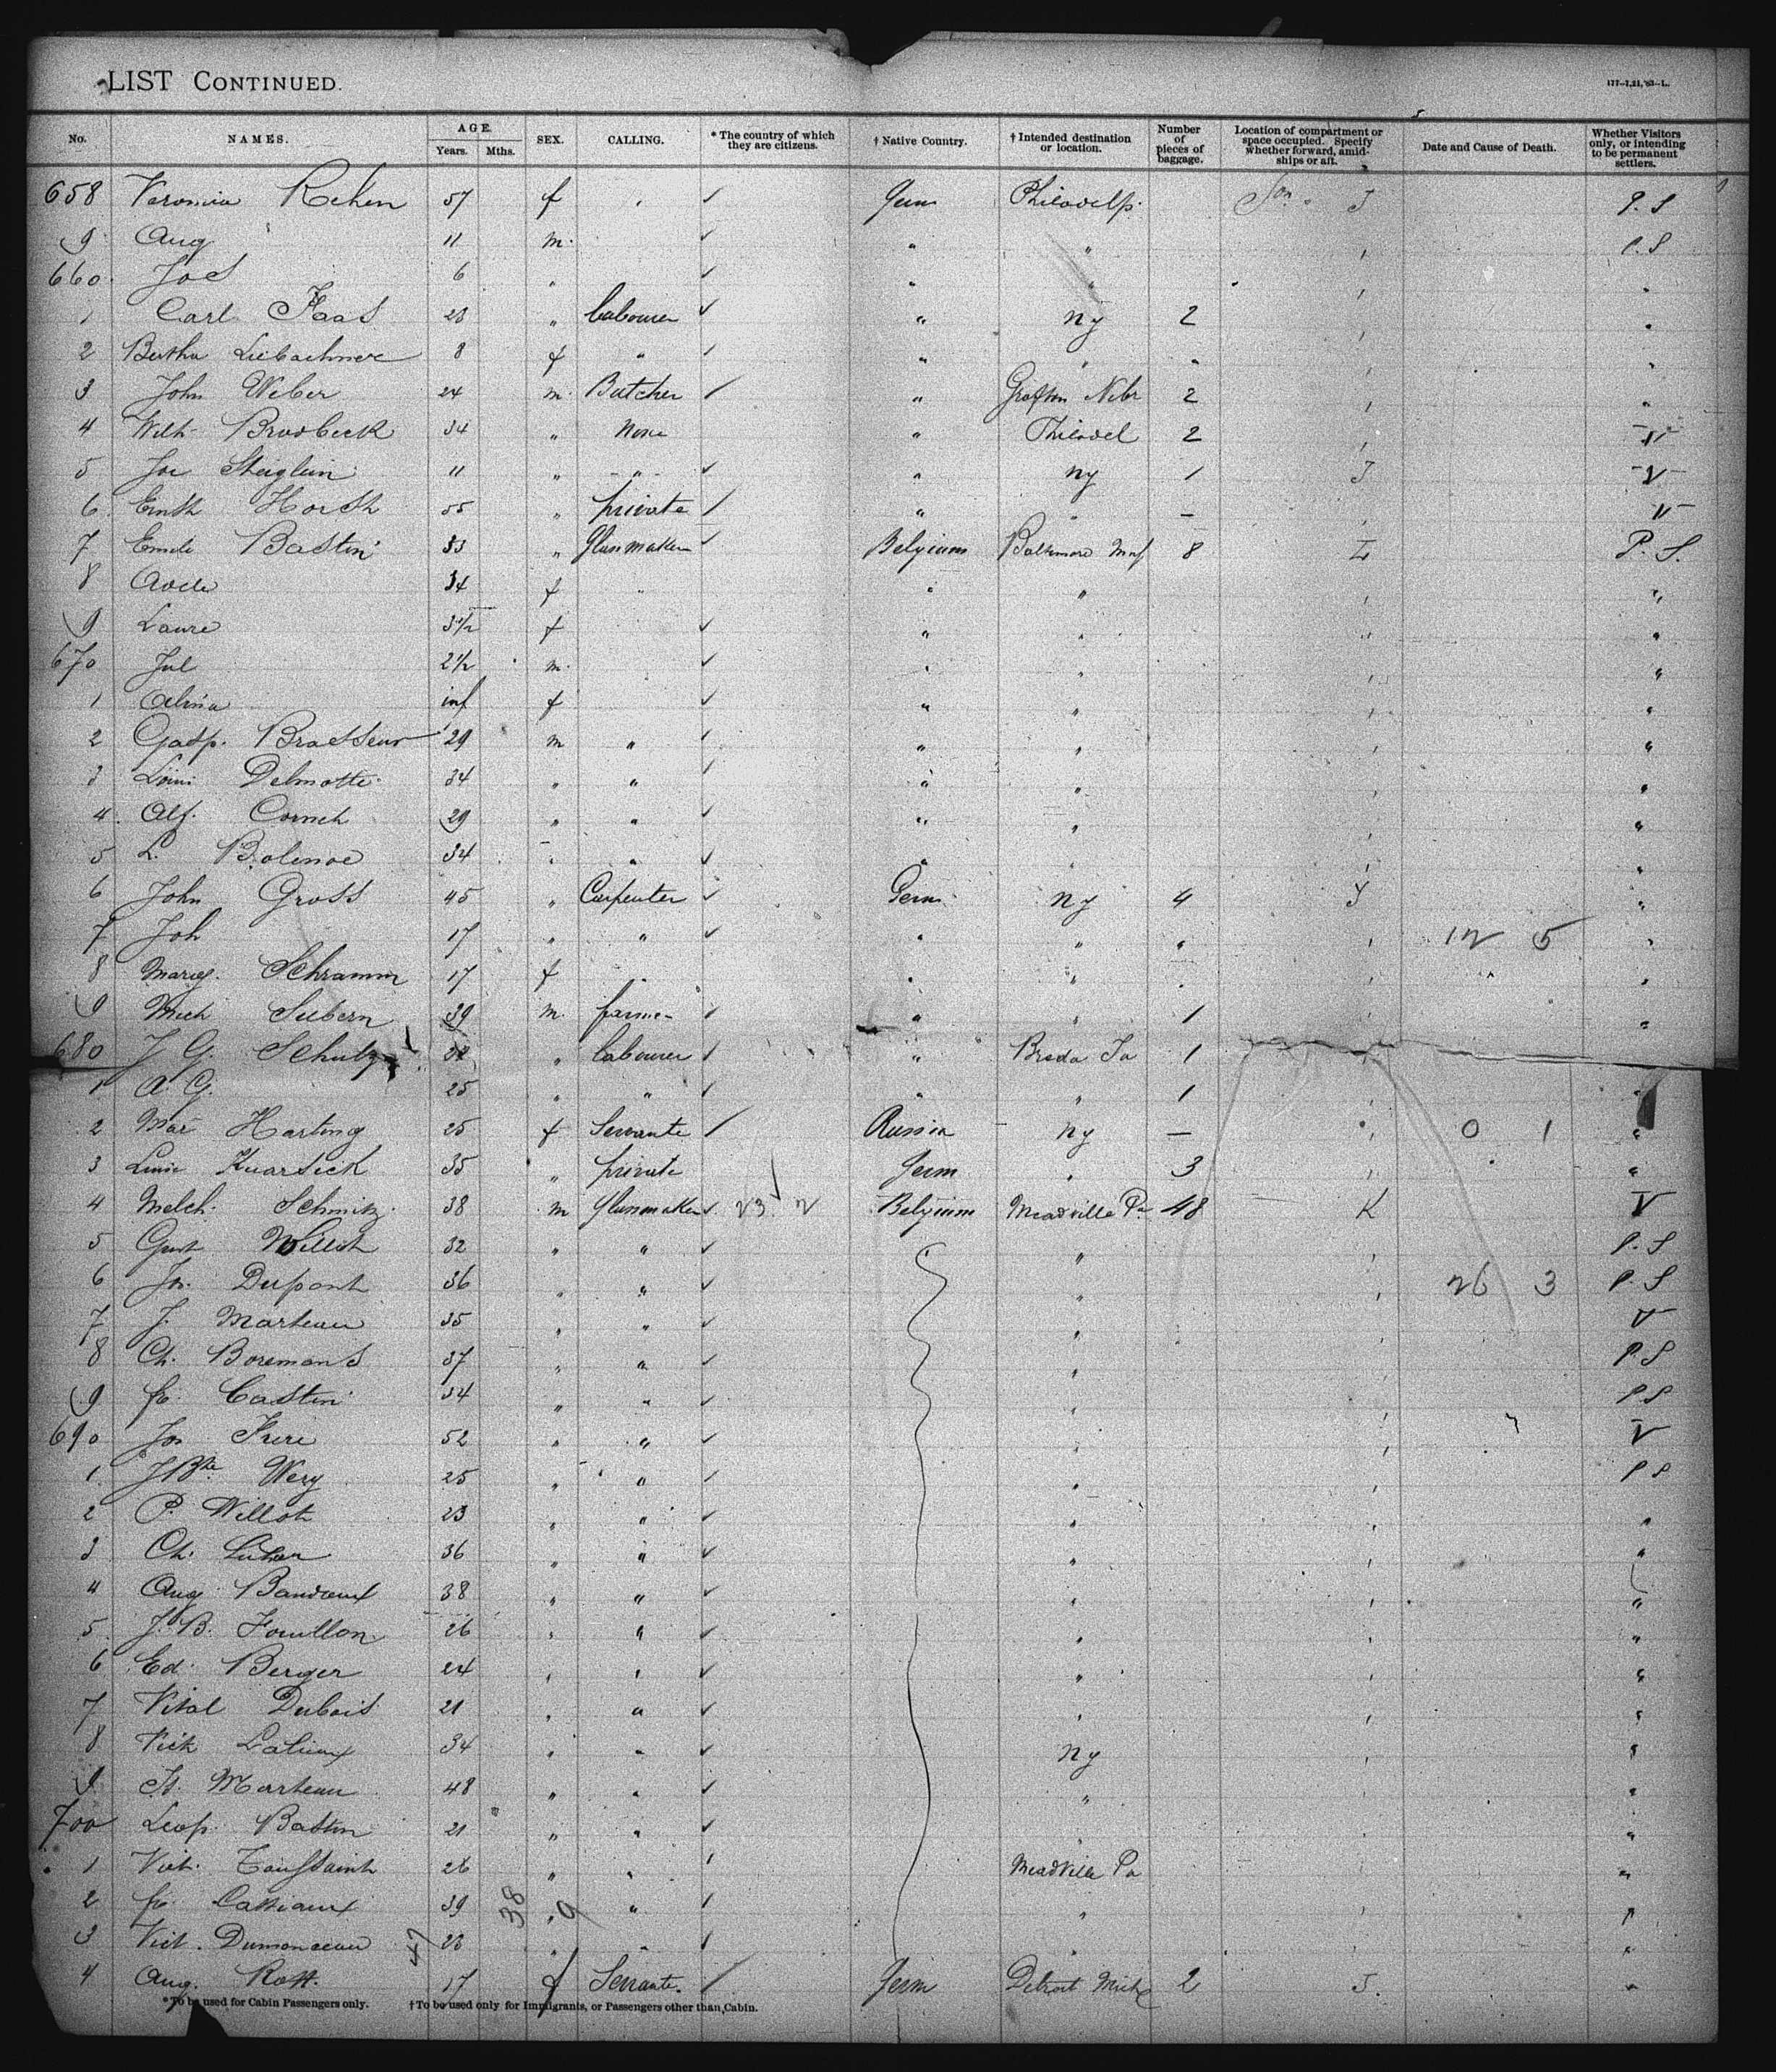 LIST CONTINUED.
177-7,21,'93-L.
No. NAMES. AGE. Years. Mths. SEX. CALLING. * The country of which they are citizens. † Native Country. † Intended destination or location. Number of pieces of baggage. Location of compartment or space occupied. Specify whether forward, amidships or aft. Date and Cause of Death. Whether Visitors only, or intending to be permanent settlers.
658 57 f ✓ Germ Philadelp. J P. S
9 Aug 11 m. ✓ " " P. S
660 Jos 6 " ✓ " " "
1 Carl Haas 23 " Labourer ✓ " N y 2 "
2 Bertha 8 f " ✓ " " " "
3 John Weber 24 m. Butcher ✓ " Grafton Nebr 2 "
4 Wilh Brodbeck 34 " None " Philadel 2 V
5 Jos 11 " " ✓ " N y 1 J V
6 Horth 55 " private ✓ " " — V
7 Emile Bastin 33 " Glasmaker ✓ Belgium Baltimore 8 L P. S.
8 34 f " " "
9 Laure 3½ f ✓ " " "
670 Jul 2½ m. ✓ " " "
1 Alina inf f ✓ " " "
2 Gasp. Brasseur 29 m " ✓ " " "
3 Delmotte 34 " " ✓ " " "
4 Alf. 29 " " ✓ " " "
5 L. 34 " " ✓ " " "
6 John Gross 45 " Carpenter ✓ Germ N y 4 J "
7 Joh 17 " " ✓ " " " 12 5 "
8 Schramm 17 f " " "
9 Mich 39 m. farmer ✓ " " 1 "
680 J G. Schulz " Labourer ✓ " Breda Ia 1
1 A. G. 25 " " ✓ " " 1 "
2 Mar Harting 25 f Servante ✓ Russia N y — 0 1 "
3 35 " private Germ " 3 "
4 Melch. Schmitz 38 m Glasmaker ✓ 23 2 Belgium Meadville Pa 48 K V
5 Gust Willot 32 " " ✓ " P. S
6 Jos. Dupont 36 " " ✓ " 26 3 P S
7 J. Marteau 35 " " ✓ " V
8 Ch. Boremans 37 " " ✓ " P. S
9 fr. Castin 34 " " ✓ " P S
690 Jos Frere 52 " " ✓ " V
1 J Bte Wery 25 " " ✓ " P S
2 P. Willot 23 " " ✓ " "
3 Ch. 36 " " ✓ " "
4 Aug Bandoux 38 " " ✓ " "
5 J. B. Fouillon 26 " " ✓ " "
6 Ed. Berger 24 " " ✓ " "
7 Vital Dubois 21 " " ✓ " "
8 Vict 34 " " ✓ N y "
9 Marteau 48 " " ✓ " "
700 Leop. Bastin 21 " " ✓ " "
1 Vict. Toussaint 26 " " ✓ Meadville Pa "
2 fr. Cassiaux 39 38 " 9 " ✓ " "
3 Vict. Dumonceau 47 23 " " ✓ " "
4 Aug. Rott. 17 f Servante. ✓ Germ Detroit Mich 2 J. "
*To be used for Cabin Passengers only. †To be used only for Immigrants, or Passengers other than Cabin.